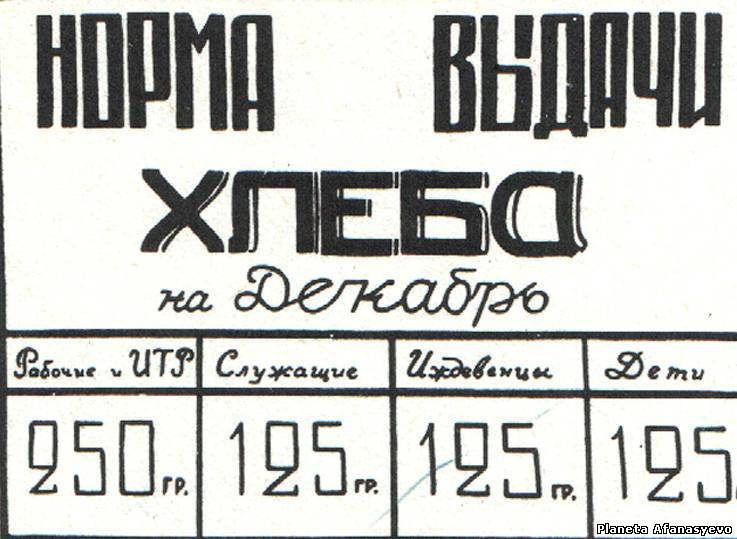 НОРМА ВЫДАЧИ
ХЛЕБА
на Декабрь
Рабочие и ИТР Служащие Иждевенцы Дети
250 гр. 125 гр. 125 гр. 125
Planeta Afanasyevo